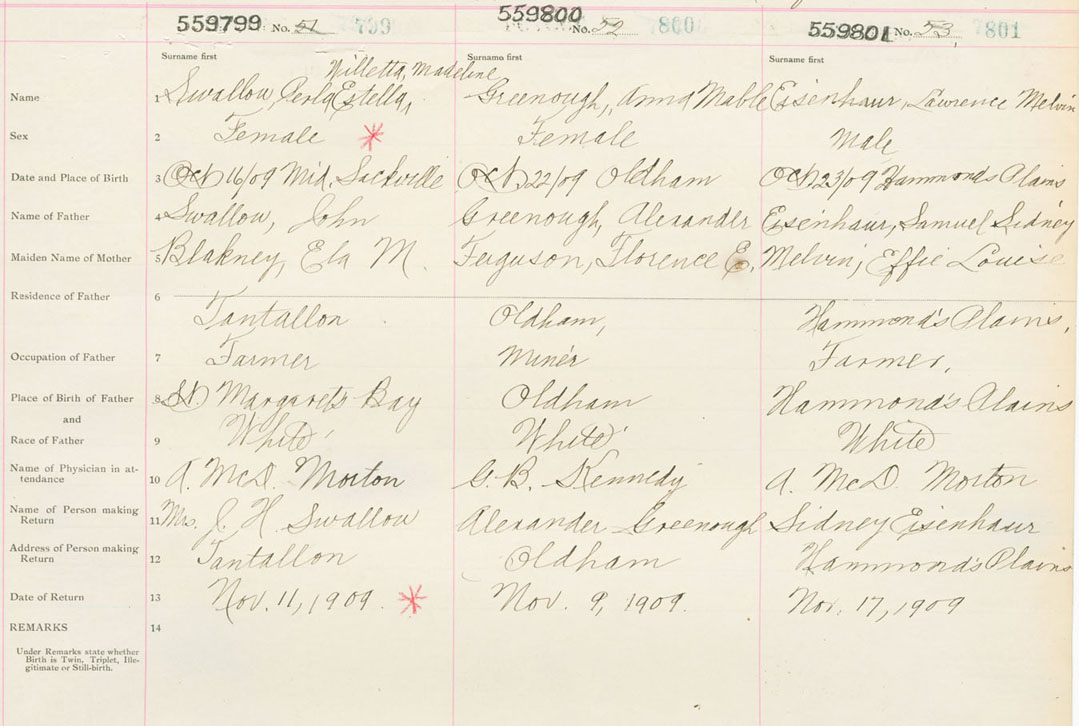 559799 No. 51 799 559800 No. 52 800 559801 No. 53, 801
Surname first Surname first Surname first
Willetta, Madeline
Name 1 Swallow, Perla Estella, Greenough, Anna Mable Eisenhaur, Lawrence Melvin
Sex 2 Female Female Male
Date and Place of Birth 3 Oct 16/09 Mid. Sackville Oct 22/09 Oldham Oct 23/09 Hammonds Plains
Name of Father 4 Swallow, John Greenough, Alexander Eisenhaur, Samuel Sidney
Maiden Name of Mother 5 Blakney, Ela M. Ferguson, Florence E. Melvin, Effie Louise
Residence of Father 6
Tantallon Oldham, Hammond's Plains,
Occupation of Father 7 Farmer Miner Farmer,
Place of Birth of Father 8 St Margarets Bay Oldham Hammond's Plains
and
Race of Father 9 White White White
Name of Physician in at-
tendance 10 A. McD. Morton G. B. Kennedy A. McD. Morton
Name of Person making
Return 11 Mrs. J. H. Swallow Alexander Greenough Sidney Eisenhaur
Address of Person making
Return 12 Tantallon Oldham Hammond's Plains
Date of Return 13 Nov. 11, 1909 Nov. 9, 1909. Nov. 17, 1909
REMARKS 14
Under Remarks state whether
Birth is Twin, Triplet, Ille-
gitimate or Still-birth.